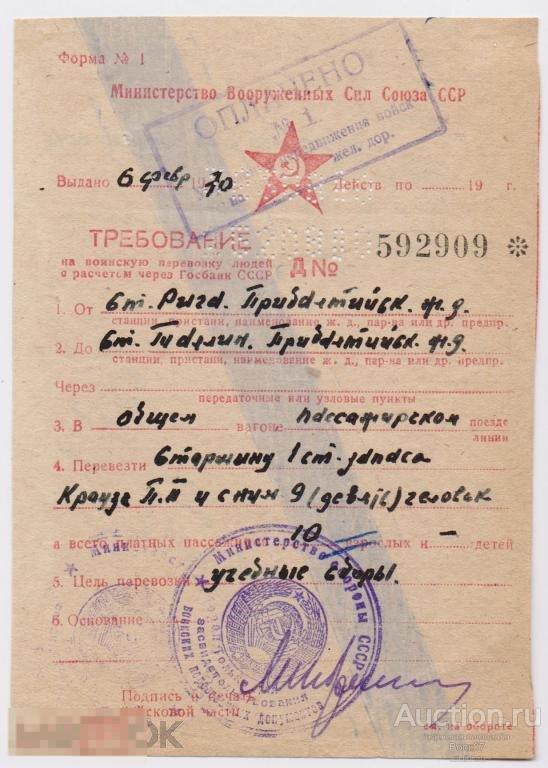 Форма № 1
ОПЛАЧЕНО
№ 1
Министерство Вооруженных Сил Союза ССР
передвижения войск
по жел. дор.
Выдано 6 февр 19 г. Действ по 19 г.
ТРЕБОВАНИЕ
на воинскую перевозку людей
с расчетом через Госбанк СССР
Д № 592909 *
1. От ст. Рига. Прибалтийск. ж.д.
станции, пристани, наименование ж. д., пар-ва или др. предпр.
2. До ст. Прибалтийск. ж.д.
станции, пристани, наименование ж. д., пар-ва или др. предпр.
Через
передаточные или узловые пункты
3. В общем вагоне пассажирском поезде
линии
4. Перевезти Старшину 1 ст. запаса
Краузе П.П и с ним 9 (девять) человек
а всего платных пассажиров 10 взрослых и — детей
5. Цель перевозки учебные сборы.
6. Основание
Министерство обороны СССР
Только для
засвидетельствования
воинских перевозочных документов
Подпись и печать
войсковой части
см. на обороте
Auction.ru